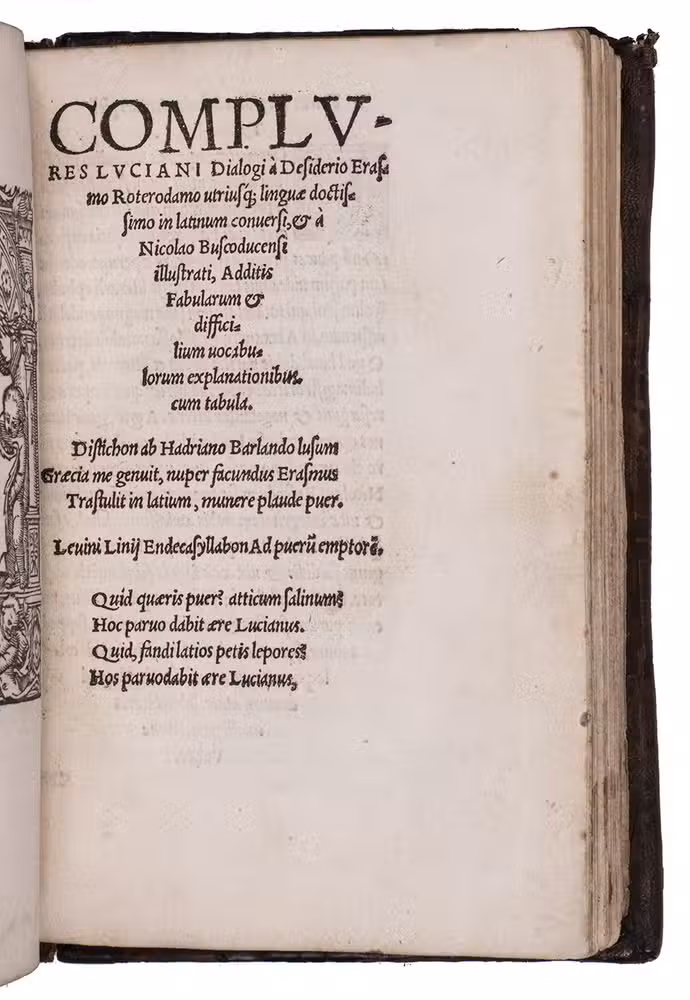 COMPLV-
RES LVCIANI Dialogi à Desiderio Eraſ-
mo Roterodamo utriuſq́; linguæ doctiſ-
ſimo in latinum conuerſi, & à
Nicolao Buſcoducenſi
illuſtrati, Additis
Fabularum &
diffici-
lium uocabu-
lorum explanationibus.
cum tabula.
Diſtichon ab Hadriano Barlando luſum
Græcia me genuit, nuper facundus Eraſmus
Traſtulit in latium, munere plaude puer.
Leuini Linij Endecaſyllabon Ad puerū emptorē.
Quid quæris puer? atticum ſalinum?
Hoc paruo dabit ære Lucianus.
Quid, fandi latios petis lepores?
Hos paruo dabit ære Lucianus,